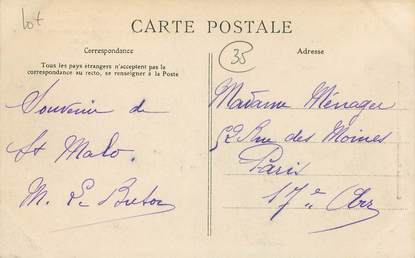 Lot
CARTE POSTALE
Correspondance
Tous les pays étrangers n'acceptent pas la
correspondance au recto, se renseigner à la Poste
Souvenir de
St Malo.
M. Le Breton
35
Adresse
Madame Ménager
52 Rue des Moines
Paris
17e Arr